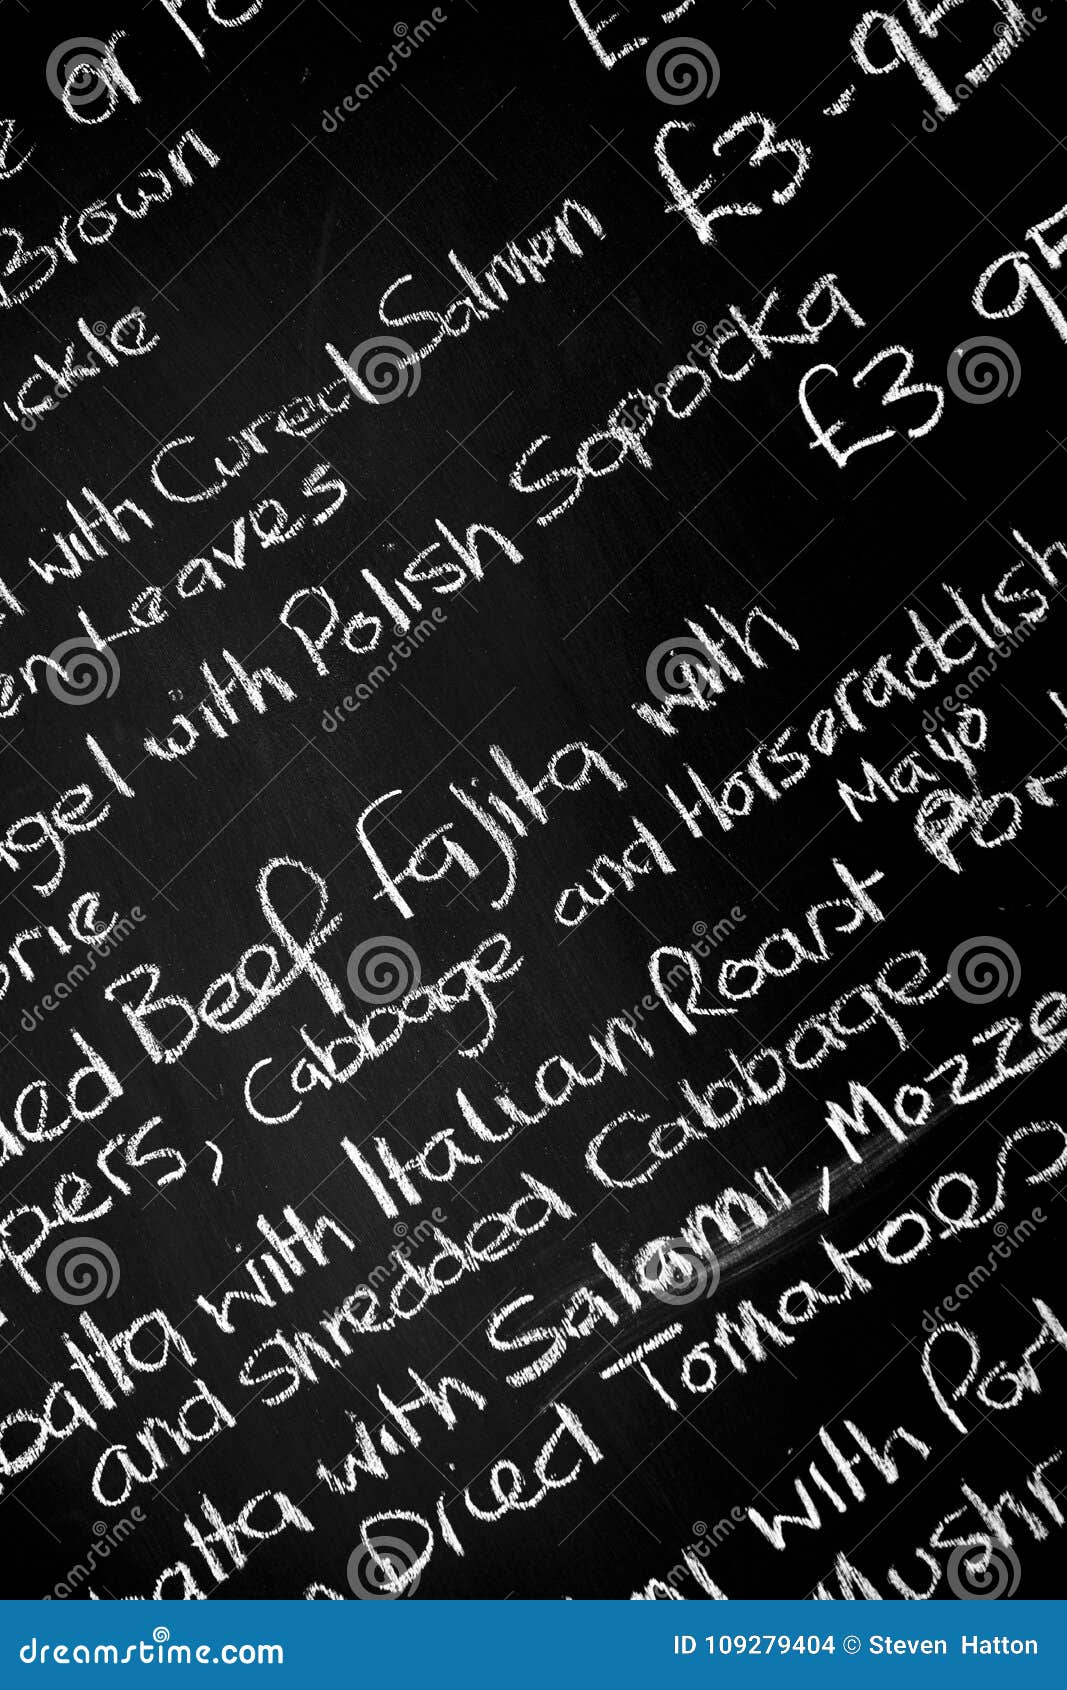 £3
or
£3-95
Brown
ickle
with Cured Salmon
en Leaves
£3.95
agel with Polish Sopocka
orie
Beef Fajita with
pers, Cabbage and Horseraddish
Mayo
oatta with Italian Roast Pork
and Shredded Cabbage
batta with Salami, Mozze
Dried Tomatoes
with Port
Mushr
dreamstime.com
ID 109279404 © Steven Hatton